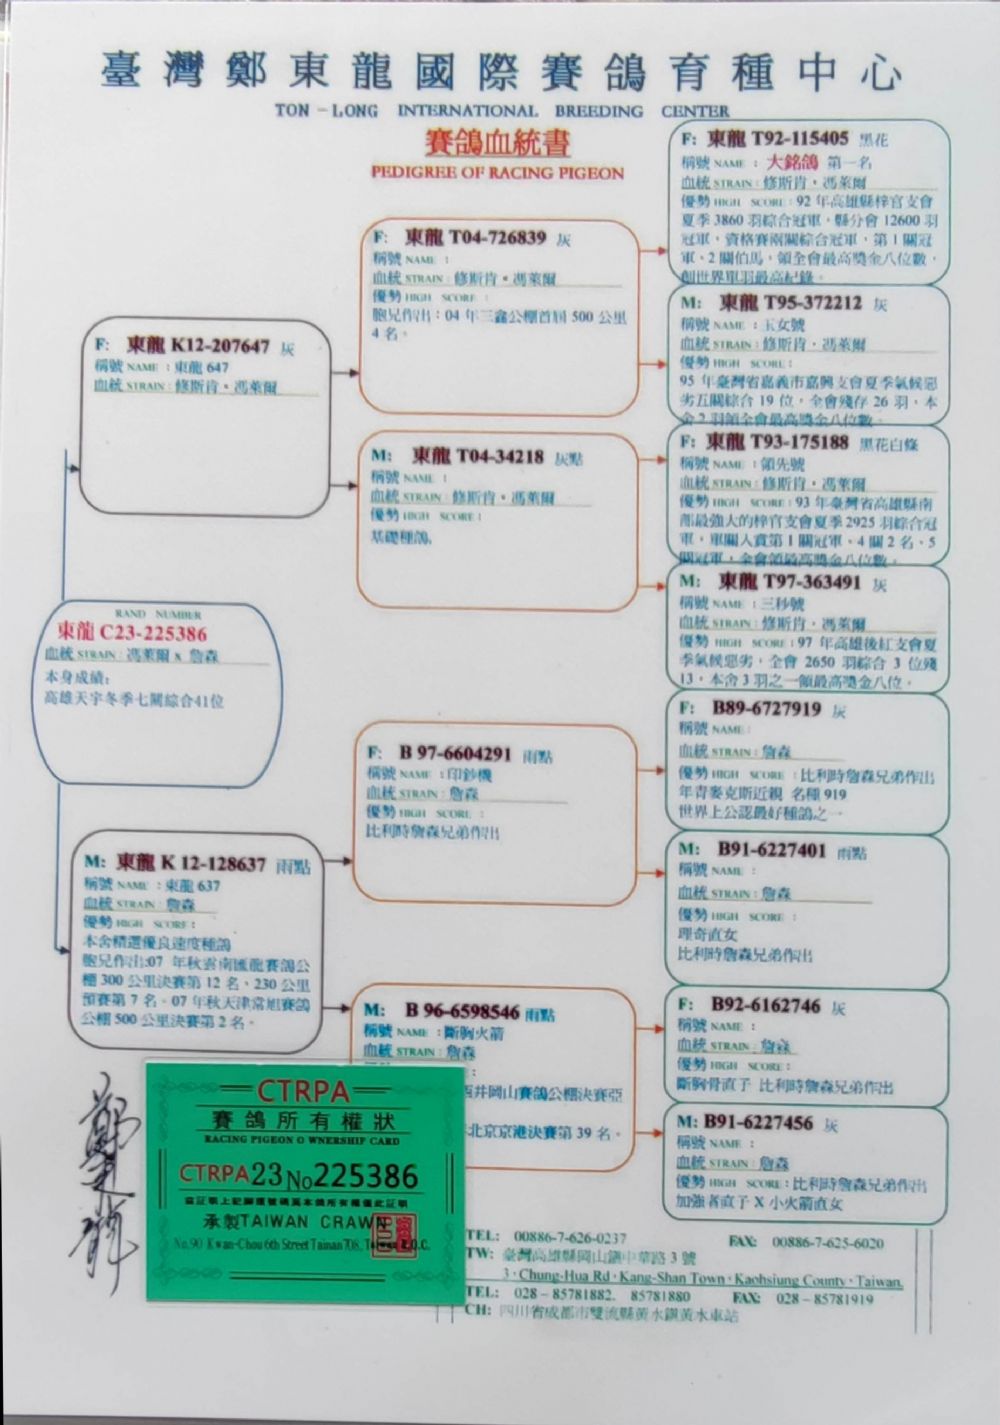 臺灣鄭東龍國際賽鴿育種中心
TON-LONG INTERNATIONAL BREEDING CENTER
賽鴿血統書
PEDIGREE OF RACING PIGEON
RAND NUMBER
東龍 C23-225386
血統 STRAIN：馮萊爾 x 詹森
本身成績：
高雄天宇冬季七關綜合41位
F: 東龍 K12-207647 灰
稱號 NAME ：東龍 647
血統 STRAIN：修斯肯。馮萊爾
M: 東龍 K 12-128637 雨點
稱號 NAME ：東龍 637
血統 STRAIN：詹森
優勢 HIGH SCORE：
本舍精選優良速度種鴿
胞兄作出:07 年秋雲南匯龍賽鴿公
棚 300 公里決賽第 12 名、230 公里
預賽第 7 名。07 年秋天津常旭賽鴿
公棚 500 公里決賽第 2 名。
F: 東龍 T04-726839 灰
稱號 NAME ：
血統 STRAIN：修斯肯。馮萊爾
優勢 HIGH SCORE：
胞兄作出：04 年三鑫公棚首屆 500 公里
4 名。
M: 東龍 T04-34218 灰點
稱號 NAME ：
血統 STRAIN：修斯肯。馮萊爾
優勢 HIGH SCORE：
基礎種鴿.
F: B 97-6604291 雨點
稱號 NAME ：印鈔機
血統 STRAIN：詹森
優勢 HIGH SCORE：
比利時詹森兄弟作出
M: B 96-6598546 雨點
稱號 NAME ：斷胸火箭
血統 STRAIN：詹森
井岡山賽鴿公棚決賽亞
北京京港決賽第 39 名。
F: 東龍 T92-115405 黑花
稱號 NAME ：大銘鴿 第一名
血統 STRAIN：修斯肯。馮萊爾
優勢 HIGH SCORE：92 年高雄縣梓官支會
夏季 3860 羽綜合冠軍，縣分會 12600 羽
冠軍，資格賽兩關綜合冠軍，第 1 關冠
軍、2 關伯馬，領全會最高獎金八位數，
創世界單羽最高紀錄。
M: 東龍 T95-372212 灰
稱號 NAME ：玉女號
血統 STRAIN：修斯肯．馮萊爾
優勢 HIGH SCORE：
95 年臺灣省嘉義市嘉興支會夏季氣候惡
劣五關綜合 19 位，全會殘存 26 羽，本
舍 2 羽領全會最高獎金八位數。
F: 東龍 T93-175188 黑花白條
稱號 NAME ：領先號
血統 STRAIN：修斯肯．馮萊爾
優勢 HIGH SCORE：93 年臺灣省高雄縣南
部最強大的梓官支會夏季 2925 羽綜合冠
軍，單關入賞第 1 關冠軍、4 關 2 名、5
關冠軍，全會領最高獎金八位數。
M: 東龍 T97-363491 灰
稱號 NAME ：三秒號
血統 STRAIN：修斯肯．馮萊爾
優勢 HIGH SCORE：97 年高雄後紅支會夏
季氣候惡劣，全會 2650 羽綜合 3 位殘
13，本舍 3 羽之一領最高獎金八位。
F: B89-6727919 灰
稱號 NAME：
血統 STRAIN：詹森
優勢 HIGH SCORE：比利時詹森兄弟作出
年青麥克斯近親 名種 919
世界上公認最好種鴿之一
M: B91-6227401 雨點
稱號 NAME ：
血統 STRAIN：詹森
優勢 HIGH SCORE ：
理奇直女
比利時詹森兄弟作出
F: B92-6162746 灰
稱號 NAME ：
血統 STRAIN：詹森
優勢 HIGH SCORE：
斷胸骨直子 比利時詹森兄弟作出
M: B91-6227456 灰
稱號 NAME ：
血統 STRAIN：詹森
優勢 HIGH SCORE：比利時詹森兄弟作出
加強者直子 X 小火箭直女
CTRPA
賽鴿所有權狀
RACING PIGEON O WNERSHIP CARD
CTRPA23No225386
當証明上記腳環號碼為本鴿所有權僅此証明
承製TAIWAN CRAWN
No.90 Kwan-Chou 6th Street Tainan 708, Taiwan R.O.C.
TEL: 00886-7-626-0237 FAX: 00886-7-625-6020
TW: 臺灣高雄縣岡山鎮中華路 3 號
3，Chung-Hua Rd，Kang-Shan Town，Kaohsiung County，Taiwan.
TEL: 028－85781882. 85781880 FAX: 028－85781919
CH: 四川省成都市雙流縣黃水鎮黃水車站